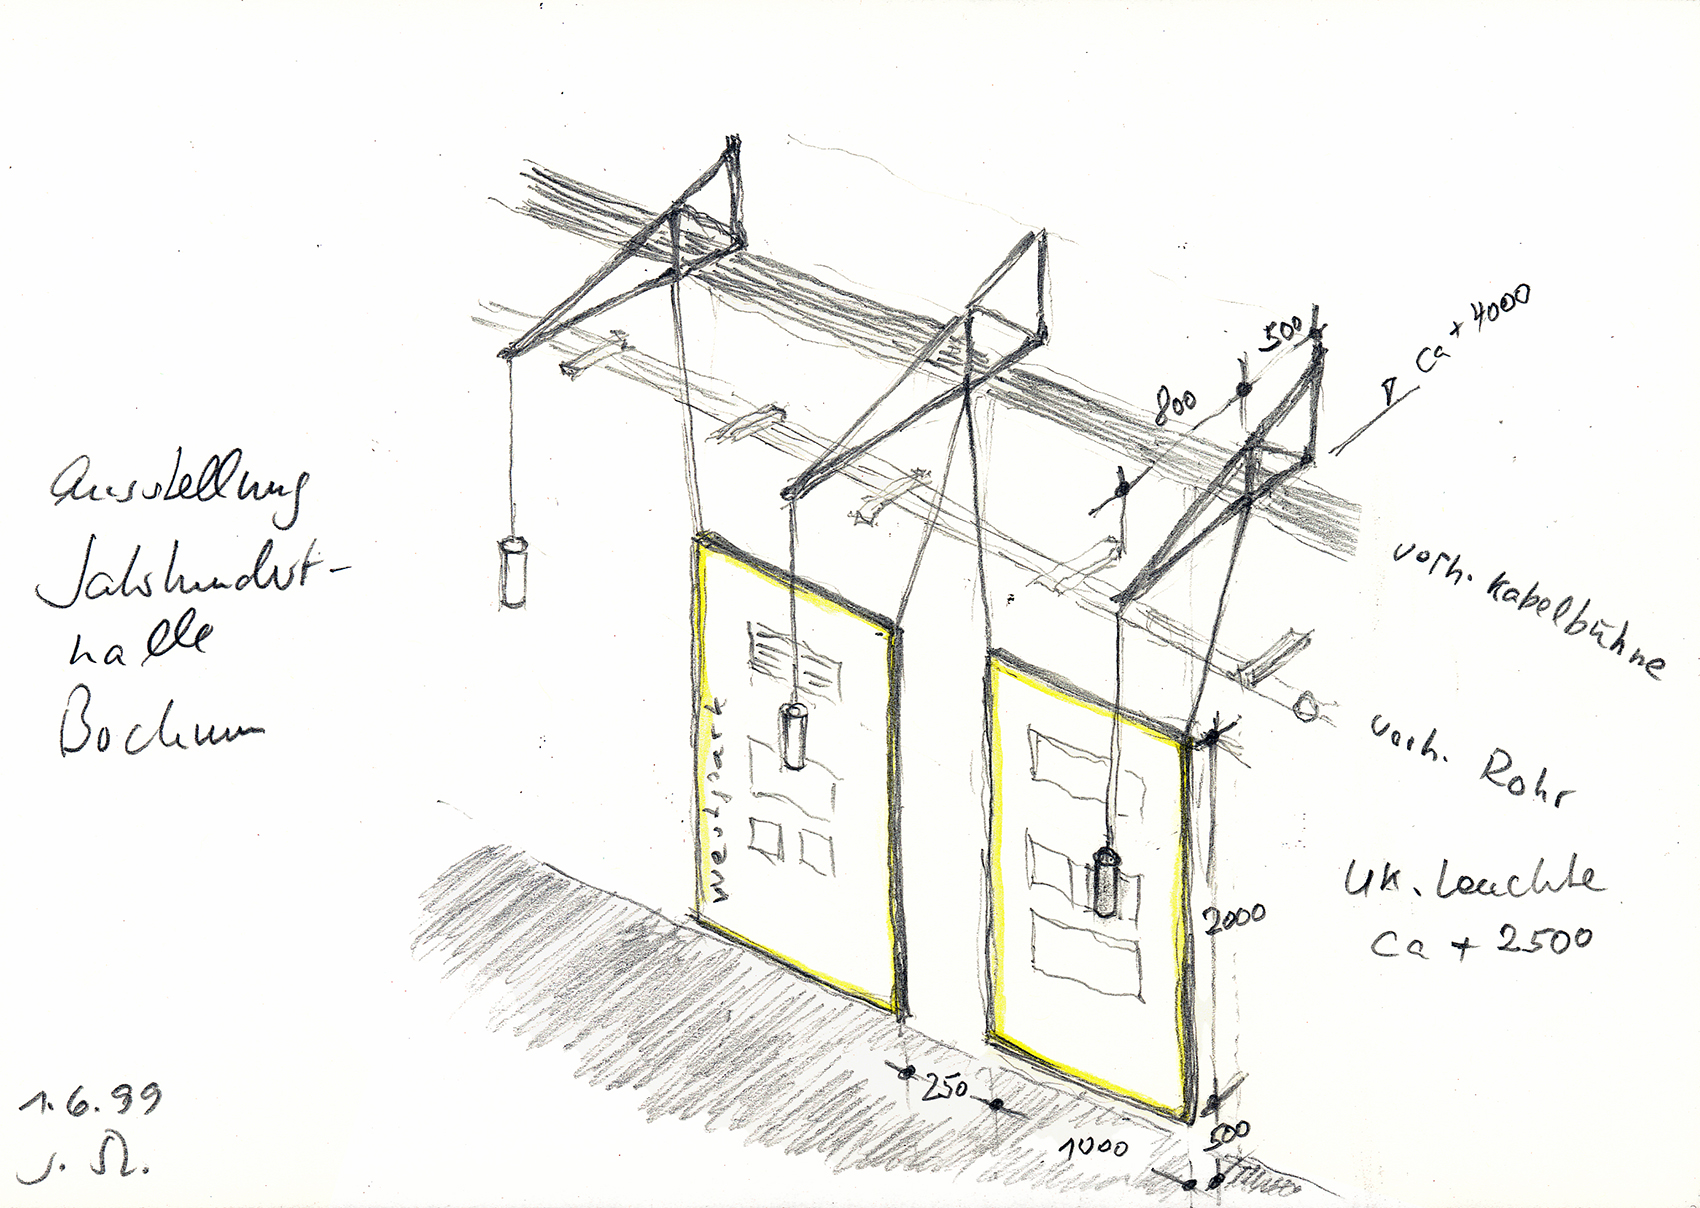 Ausstellung
Jahrhundert-
halle
Bochum
1.6.99
500
800
Ca + 4000
vorh. Kabelbühne
vorh. Rohr
UK. Leuchte
Ca + 2500
Westpark
2000
250
1000
500